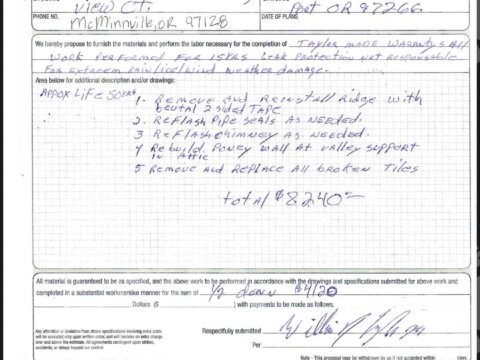 View CT.
Port OR 97266
PHONE NO.
McMinnville, OR 97128
DATE OF PLANS
We hereby propose to furnish the materials and perform the labor necessary for the completion of Taylor made Warrantys All
work Performed For 15 years Leak Protection Not Responsable
For Extreem rain/ice/wind weather damage.
Area below for additional description and/or drawings:
APPOX Life 50 yrs
1. Remove and Reinstall Ridge with
2 sided Tape
2. ReFlash Pipe seals As Needed.
3 ReFlash chimney As Needed.
4 Rebuild Poney wall at valley support
in Attic
5 Remove and Replace All broken Tiles
total $8240
All material is guaranteed to be as specified, and the above work to be performed in accordance with the drawings and specifications submitted for above work and
completed in a substantial workmanlike manner for the sum of 1/2 down $4120
Dollars ($ ) with payments to be made as follows.
Any alteration or deviation from above specifications involving extra costs
will be executed only upon written order, and will become an extra charge
over and above the estimate. All agreements contingent upon strikes,
accidents, or delays beyond our control.
Respectfully submitted
Per
Note - This proposal may be withdrawn